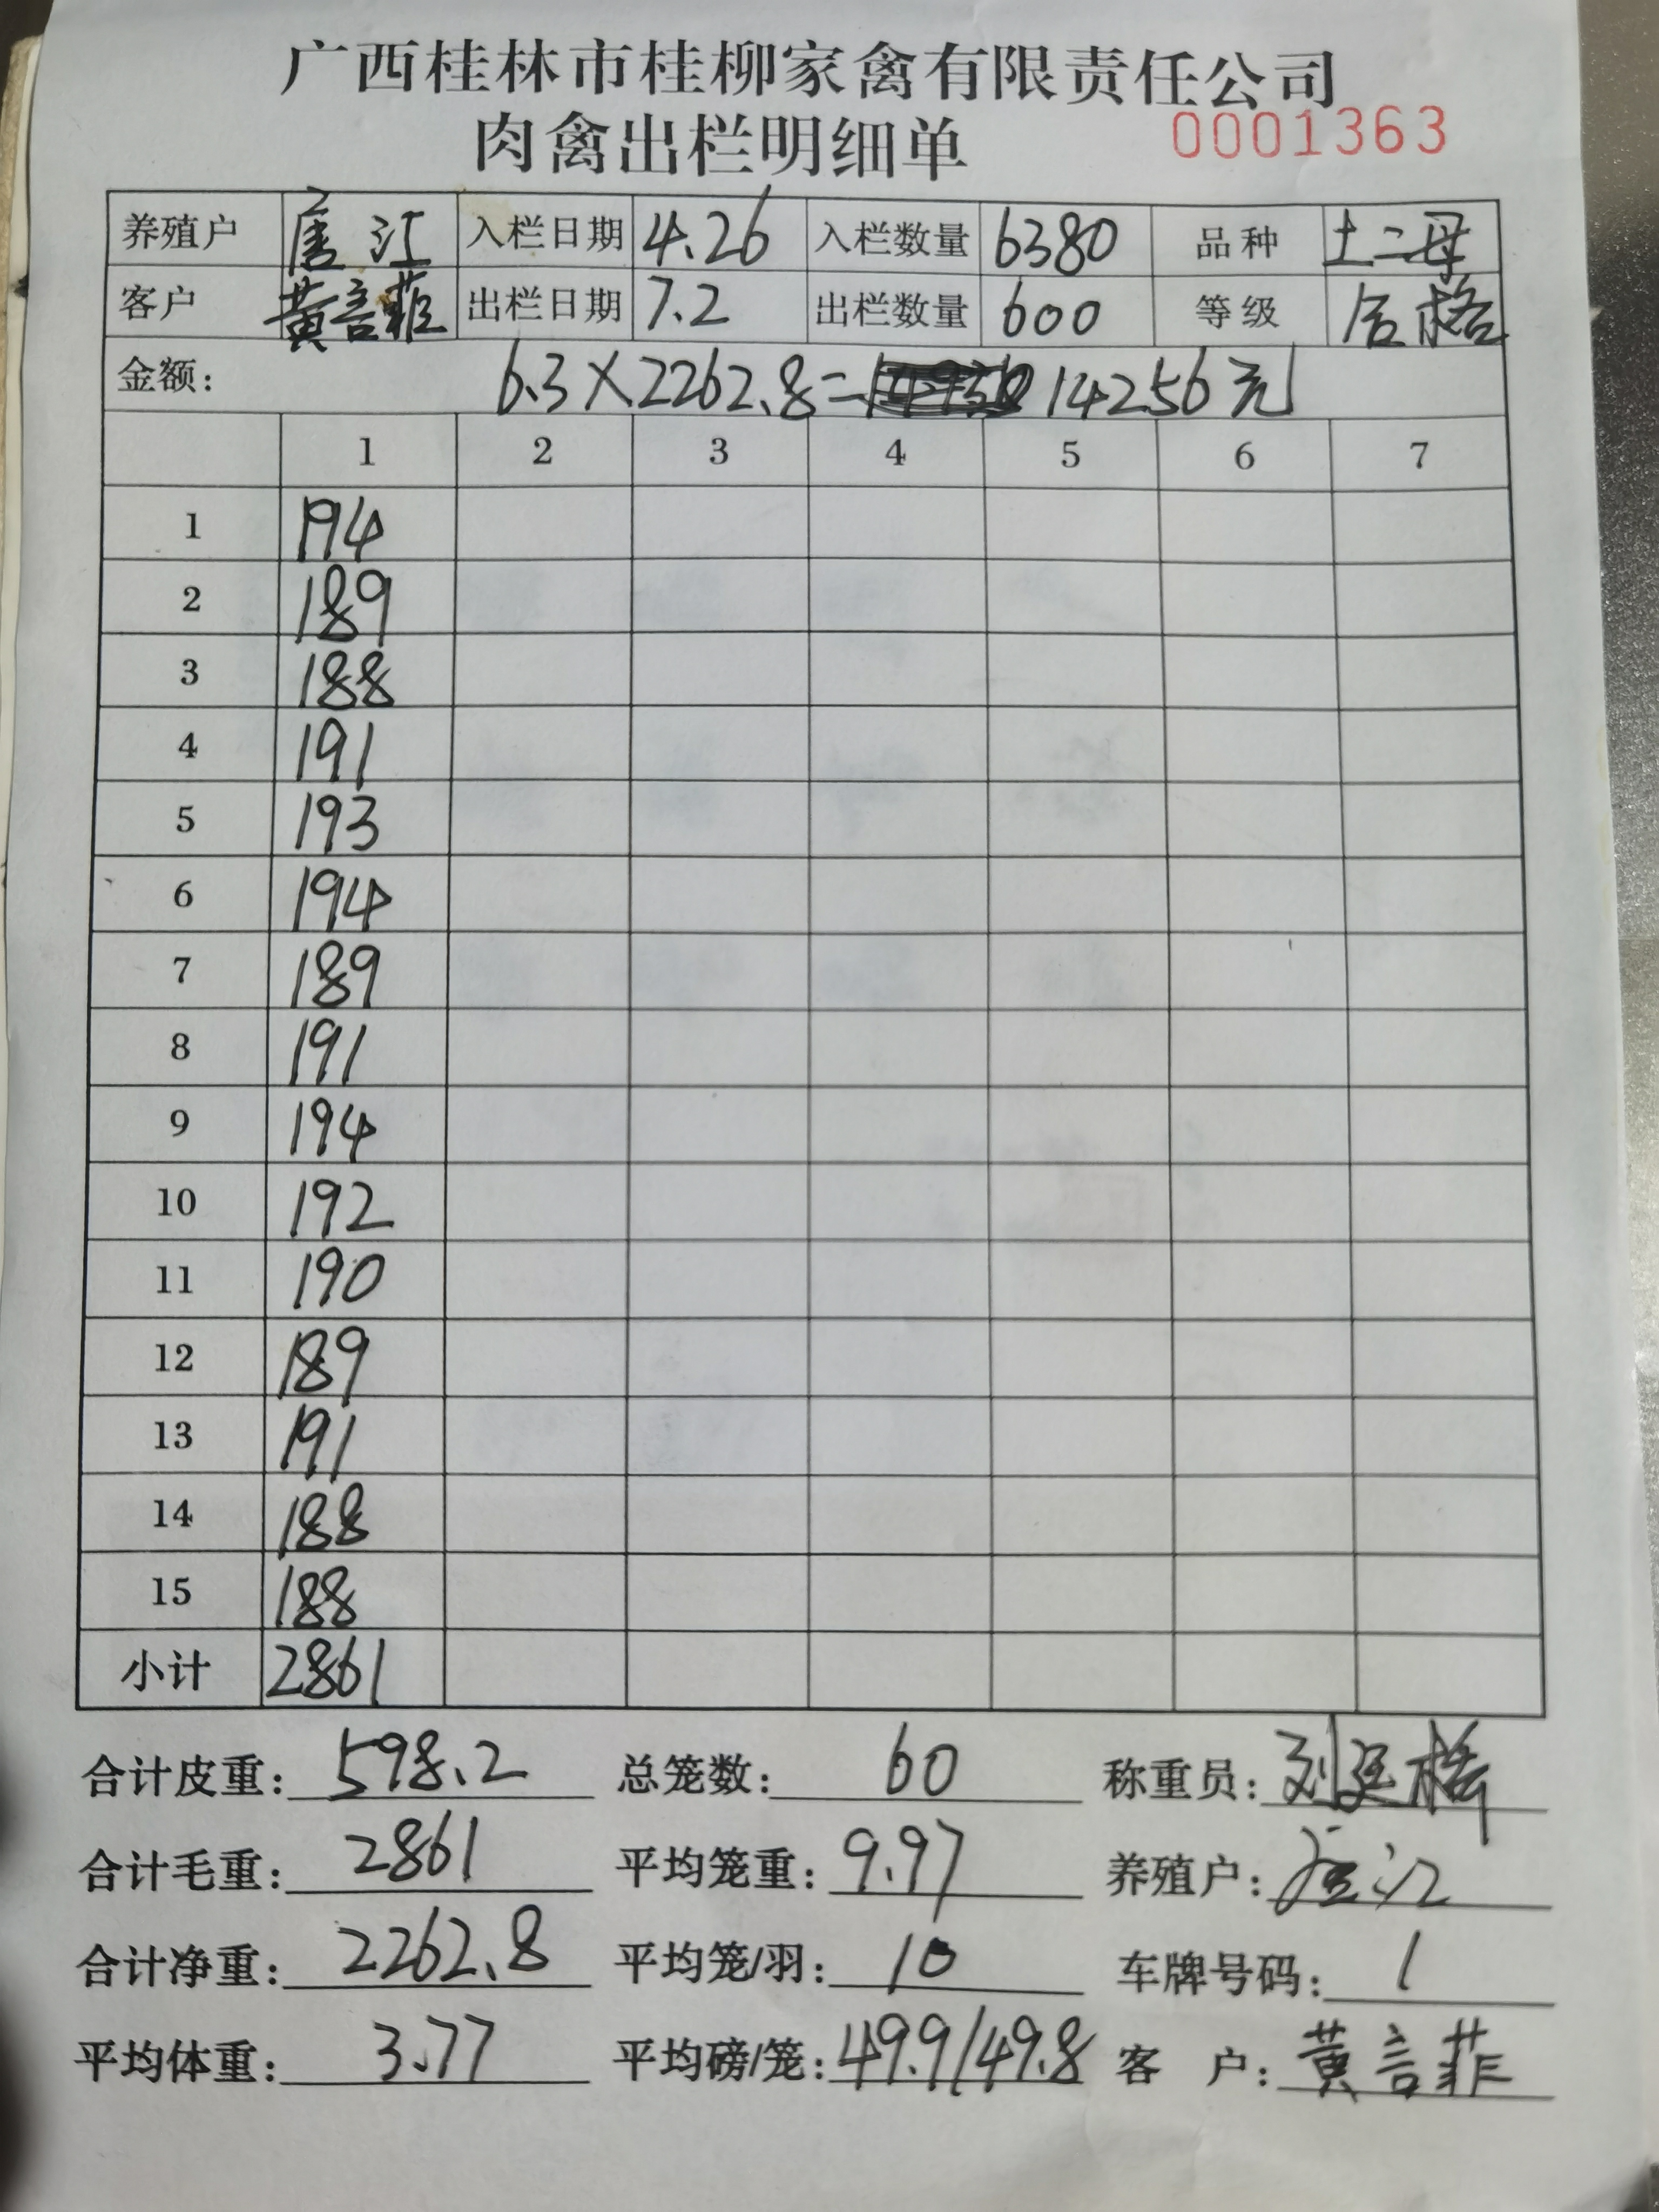 广西桂林市桂柳家禽有限责任公司
肉禽出栏明细单 0001363
养殖户 唐江 入栏日期 4.26 入栏数量 6380 品种 土二母
客户 黄言菲 出栏日期 7.2 出栏数量 600 等级 合格
金额: 6.3×2262.8= 14256元
1 2 3 4 5 6 7
1 194
2 189
3 188
4 191
5 193
6 194
7 189
8 191
9 194
10 192
11 190
12 189
13 191
14 188
15 188
小计 2861
合计皮重: 598.2 总笼数: 60 称重员: 刘廷格
合计毛重: 2861 平均笼重: 9.97 养殖户: 唐江
合计净重: 2262.8 平均笼/羽: 10 车牌号码: 1
平均体重: 3.77 平均磅/笼: 49.9/49.8 客 户: 黄言菲